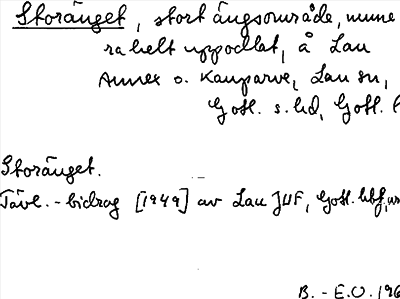 Storänget, stort ängsområde, nume
ra helt uppodlat, å Lau
Annex o. Kauparve, Lau sn,
Gotl. s. hd, Gotl. l
Storänget.
Tävl.-bidrag [1949] av Lau JUF, Gotl.
B.-E.O. 196